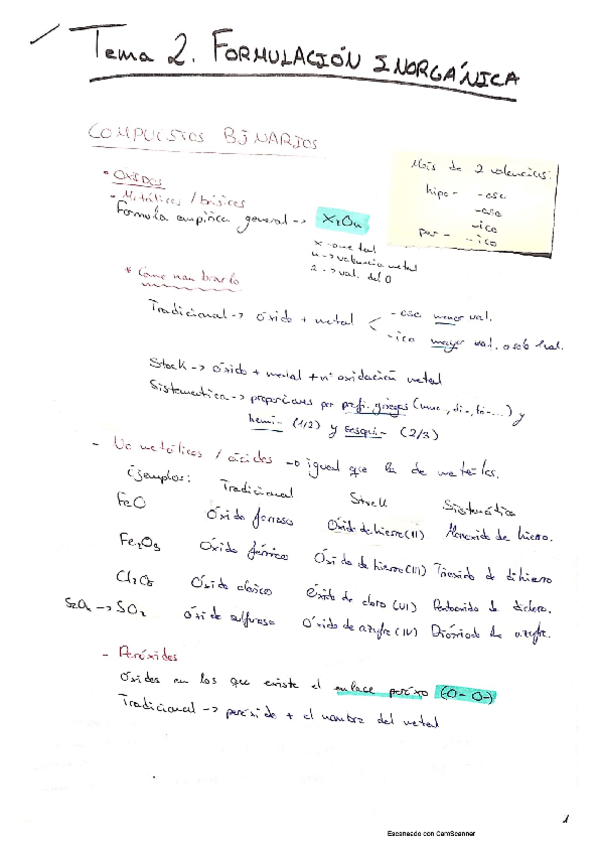 Tema 2. FORMULACIÓN INORGÁNICA
COMPUESTOS BINARIOS
Más de 2 valencias:
hipo- -oso
-oso
-ico
per- -ico
• ÓXIDOS
- Metálicos / básicos
Formula empírica general -> X₂On
X -> metal
n -> valencia metal
2 -> val. del O
* Como nombrarlo
Tradicional -> óxido + metal < -oso menor val.
-ico mayor val. o solo 1 val.
Stock -> óxido + metal + nº oxidación metal
Sistemática -> proporciones por prefi. griegos (mono-, di-, tri-...) y
hemi- (1/2) y sesqui- (2/3)
- No metálicos / ácidos -> igual que la de metales.
Ejemplos: Tradicional Stock Sistemática
FeO Óxido ferroso Óxido de hierro (II) Monoxido de hierro.
Fe₂O₃ Óxido férrico Óxido de hierro (III) Trioxido de dihierro
Cl₂O₅ Óxido clorico Óxido de cloro (VI) Pentaoxido de dicloro.
S₂O₄ -> SO₂ Óxido sulfuroso Óxido de azufre (IV) Dióxido de azufre.
- Peróxidos
Óxidos en los que existe el enlace peróxo (-O-O-)
Tradicional -> peróxido + el nombre del metal
1
Escaneado con CamScanner